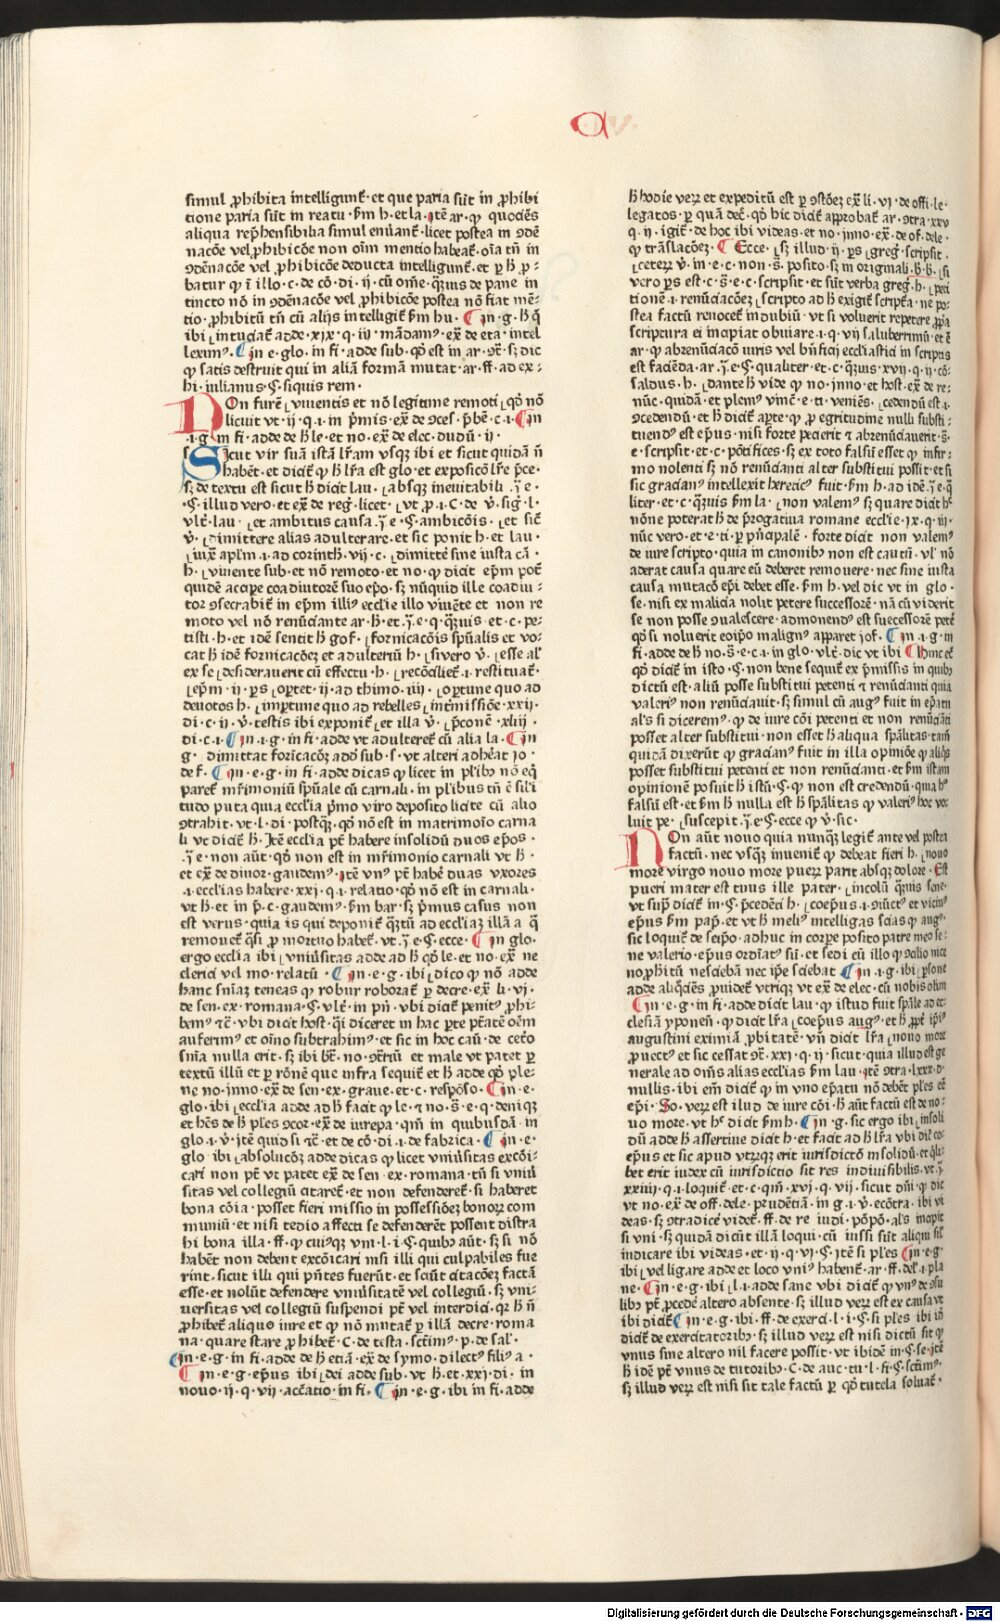 simul ꝓhibita intelligunt̄· et que paria sūt in ꝓhibi
tione paria sūt in reatu· ẜm h· et la· ꝛtē ar· ꝙ quociēs
aliqua rep̄hensibilia simul enūant̄· licet postea in ꝯdē
nacōe vel ꝓhibicōe non oīm mentio habeat̄· oīa tn̄ in
ꝯdēnacōe vel ꝓhibicōe deducta intelligunt̄· et ꝑ ħ ꝓ-
batur ꝙ ī illo· c· de cō· di· ij· cū om̄e· ꝗ̄uis de pane in
tincto nō in ꝯdēnacōe vel ꝓhibicōe postea nō fiat mē-
tio· ꝓhibitū tn̄ cū alijs intelligit̄ ẜm hu· ¶ in· g· ħ q̄
ibi intuciat̄ adde· xjx· q· iij· mādamꝰ· ex̄ de eta· intel
leximꝰ· ¶ in e· glo· in fi· adde sub· qd̄ est in ar· ꝯt̄· sꝫ dic
ꝙ satis destruit qui in aliā formā mutat· ar· ff· ad ex-
hi· iulianus· §· siquis rem·
Non furē viuentis et nō legitime remoti qd̄ nō
licuit vt ij· q· i· in p̄mis· ex̄ de ꝯces· p̄be· c· i· ¶ in
·i· g· in fi· adde de ħ le· et no· ex̄ de elec· dudū· ij·
Sicut vir suā istā lr̄am vsqꝫ ibi et sicut quidā ñ
habēt· et dicit̄ ꝙ ħ lr̄a est glo· et exposicō lr̄e p̄ce·
sꝫ de textu est sicut ħ dicit lau· absqꝫ ineuitabili· j̄· e·
·§· illud vero· et ex̄ de reḡ· licet· vt ꝓ· i· C· de v̄· siḡ· l·
vlt̄· lau· et ambitus causa· j̄· e· §· ambicōis· et sic̄
v̄· dimittere alias adulterare· et sic ponit h· et lau·
iuxͣ apl̄m· i· ad corinth· vij· c· dimittē sine iusta cā·
h· viuente sub· et nō remoto· et no· ꝙ dicit ep̄m pot̄
quidē accipe coadiutorē suo ep̄o· sꝫ nūquid ille coadiu-
tor ꝯsecrabit̄ in ep̄m illiꝰ ecclīe illo viuēte et non re
moto vel nō renūciante ar· ħ· et· j̄· e· q· ꝗ̄uis· et· c· pe-
tisti· h· et idē sentit ħ gof· fornicacōis spūalis et vo-
cat ħ idē fornicacōeꝫ et adulteriū h· siuero v̄· esse al
ex se desiderauerit cū effectu· h· recōciliet̄· i· restituat̄·
ep̄m· ij· ꝑs oꝑtet· ij· ad thimo· iiij· oꝑtune quo ad
deuotos h· imꝑtune quo ad rebelles int̄missiōe· xxij·
di· c· ij· v̄· testis ibi exponit̄· et illa v̄· p̄conē· xliij·
di· c· i· ¶ in· i· g· in fi· adde vt adulteret̄ cū alia la· ¶ in
g· dimittat fornicacōꝫ add̄ sub· s· vt alteri adh̄eat jo·
de f· ¶ in· e· g· in fi· adde dicas ꝙ licet in pl̄ibꝰ nō eq̄
paret̄ mr̄imoniū spūale cū carnali· in pl̄ibus tn̄ ē sili
tudo puta quia ecclīa p̄mo viro deposito licite cū alio
ꝯtrahit· vt· l· di· postqͣꝫ· qd̄ nō est in matrimoīo carna
li vt dicit̄ ħ· Itē ecclīa pt̄ habere insolidū duos ep̄os·
·j̄· e· non aūt· qd̄ non est in mr̄imonio carnali vt ħ·
et ex̄ de diuor· gaudemꝰ· ꝛtē vnꝰ pt̄ habē duas vxores
·i· ecclīas habere· xxj· q· i· relatio· qd̄ nō est in carnali·
vt ħ· et in p̄· c· gaudemꝰ· ẜm bar· sꝫ p̄mus casus non
est verus· quia is qui deponit̄ ꝗ̄tū ad ecclīaꝫ illā a q̄
remouet̄ q̄si ꝓ mortuo habet̄· vt· j̄· e· §· ecce· ¶ in glo·
ergo ecclīa ibi vniūsitas adde ad ħ qd̄ le· et no· ex̄ ne
clerici vel mo· relatū· ¶ in· e· g· ibi dico ꝙ nō adde
hanc sn̄iaꝫ teneas ꝙ robur roborat̄ ꝑ decre· ex̄ li· vj·
de sen· ex· romana· §· vlt̄· in pn̄· vbi dicit̄ penitꝰ ꝓhi-
bemꝰ ⁊c̄· vbi dicit host· q̄i diceret in hac ꝑte ptātē oēm
aufermꝰ et oīno subtrahimꝰ· et sic in hoc caū· de cet̄o
sn̄ia nulla erit· sꝫ ibi bn̄· no· ꝯt̄riū et male vt patet ꝑ
textū illū et ꝑ rōnē que infra sequit̄ et ħ adde qd̄ ple-
ne no· jnno· ex̄ de sen· ex· graue· et· c· respōso· ¶ in· e·
glo· ibi ecclīa adde ad ħ facit ꝙ le· ⁊ no· s̄· e· q· deniqꝫ
et hēs de ħ ples ꝯcor· ex̄ de iurepa· qm̄ in quibusdā· in
glo· i· v̄· jtē quid si ⁊c̄· et de cō· di· i· de fabrica· ¶ in· e·
glo ibi absolucōꝫ adde dicas ꝙ licet vniūsitas excōi-
cari non pt̄ vt patet ex̄ de sen· ex· romana· tn̄ si vniū
sitas vel collegiū citaret̄· et non defenderet̄· si haberet
bona cōia· posset fieri missio in possessiōeꝫ bonoꝝ com
muniū· et nisi tedio affecti se defenderēt possent distra
hi bona illa· ff· ꝙ cuiꝰqꝫ vni· l· i· §· quibꝰ aūt· sꝫ si nō
habēt non debent excōicari nisi illi qui culpabiles fue
rint· sicut illi qui pn̄tes fuerūt· et sciūt citacōeꝫ factā
esse· et nolūt defendere vniūsitatē vel collegiū· sꝫ vni-
uersitas vel collegiū suspendi pt̄ vel interdici· qꝫ ħ ñ
ꝓhibet̄ aliquo iure et ꝙ nō mutat̄ ꝑ illā decre· roma
na· quare stare ꝓhibet̄· C· de testa· sctīmꝰ· p· de sal·
¶ in· e· g· in fi· adde de ħ etiā· ex̄ de symo· dilectꝰ filiꝰ a·
¶ in· e· g· ep̄us ibi dei adde sub· vt ħ· et· xxj· di· in
nouo· ij· q· vij· accūatio· in fi· ¶ in· e· g· ibi in fi· adde
a v·
ħ hodie veꝝ et expeditū est ꝑ ꝯstōeꝫ ex̄ li· vj· de offi· le-
legatos· ꝑ quā dec̄· qd̄ hic dicit̄ approbat̄ ar· ꝯtra· xxv
q· ij· igit̄· de hoc ibi videas· et no· jnno· ex̄· de of· dele·
ꝙ trāslacōeꝫ· ¶ Ecce· sꝫ illud· ij· ꝑs· greg̊· scripsit·
ceteꝝ v̄· in· e· c· non· s̄· posito· sꝫ in originali· ħ· ħ· si
vero ꝑs est· c· s̄· e· c· scripsit· et sūt verba greg̊· h· peti
tionē· i· renūciacōeꝫ scripto ad ħ exigit̄ script̄a· ne po-
stea factū reuocet̄ in dubiū· vt si voluerit repetere ꝓp̄a
scriptura ei incipiat obuiare· i· q· vij· saluberrimū· et ē
ar· ꝙ abrenūciacō iuris vel bn̄ficij ecclīastici in scriptis
est faciēda· ar· j̄· e· §· qualiter· et· c· ꝗ̄uis· xvij· q· ij· cō-
saldus· h· dante ħ vide ꝙ no· jnno· et host· ex̄ de re-
nūc· quidā· et plemꝰ vinc̄· e· ti· veniēs· cedendū est· i·
ꝯcedendū· et ħ dicit̄ aꝑte· ꝙ ꝓ egritudine nulli substi-
tuendꝰ est ep̄us· nisi forte pecierit ⁊ abrenūciauerit· s̄·
e· scripsit· et· c· pōtifices· sꝫ ex toto falsū esset ꝙ infir-
mo nolenti sꝫ nō renūcianti alter substitui possit· et si
sic gracianꝰ intellexit hereticꝰ fuit· ẜm h· ad idē j̄· e· q̄
liter· et· c· ꝗ̄uis ẜm la· non valemꝰ sꝫ quare dicit hͨ
nōne poterat ħ de p̄rogatiua romane ecclīe· jx· q· iij·
nūc vero· et· e· ti· ꝑ pn̄cipalē· forte dicit non valemꝰ
de iure scripto· quia in canonibꝰ non est cautū· vl̄ nō
aderat causa quare eū deberet remouere· nec sine iusta
causa mutacō ep̄i debet esse· ẜm h· vel dic vt in glo·
se· nisi ex malicia nolit petere successorē· nā cū viderit
se non posse ꝯualescere· admonendꝰ est successorē petē
qd̄ si noluerit eoip̄o malignꝰ apparet jof· ¶ in· i· g· in
fi· adde de ħ no· s̄· e· c· i· in glo· vlt̄· dic vt ibi ¶ hinc et̄
qd̄ dicit̄ in isto· §· non bene sequit̄ ex p̄missis in quibꝰ
dictū est· aliū posse substitui petenti ⁊ renūcianti quia
valeriꝰ non renūciauit· sꝫ simul cū augꝰ fuit in ep̄atu
al's si diceremꝰ· ꝙ de iure cōi petenti et non renūciāti
posset alter substitui· non esset ħ aliqua spālitas· tam̄
quidā dixerūt ꝙ gracianꝰ fuit in illa opiniōe ꝙ aliq̄s
posset substitui petenti et non renūcianti· et ẜm istam
opinionē posuit ħ istū· §· ꝙ non est credendū· quia hͨ
falsū est· et ẜm ħ nulla est ħ spālitas ꝙ valeriꝰ hoc vo-
luit pe· suscepit· j̄· e· §· ecce ꝙ v̄· sic·
Non aūt nouo quia nunqͣꝫ legit̄ ante vel postea
factū· nec vsqͣꝫ inuenit̄ ꝙ debeat fieri h· nouo
more virgo nouo more pueꝝ parit absqꝫ dolore· Est
pueri mater est tuus ille pater· incolū ꝗ̄uis sene·
vt sup̄ dicit̄ in· §· p̄cedēti h· coep̄us· i· ꝯiūctꝰ et vicinꝰ
ep̄us ẜm pap̄· et vt ħ meliꝰ intelligas scias ꝙ augꝰ·
sic loquit̄ de seip̄o· adhuc in corꝑe posito patre meo se-
ne valerio· ep̄us ordīatꝰ sū· et sedi cū illo ꝙ ꝯcilio nice
no ꝓhitū nesciebā nec ip̄e sciebat ¶ in· i· g· ibi ꝑsone
adde aliq̄ciēs ꝓuidet̄ vtriqꝫ vt ex̄ de elec· cū nobis olim
¶ in· e· g· in fi· adde dicit lau· ꝙ istud fuit spāle ad ec-
clesiā yponen̄· ꝙ dicit lr̄a coep̄us augꝰ· et ħ ꝓpt̄ ip̄iꝰ
augustini eximiā ꝓbitatē· vn̄ dicit lr̄a nouo more
ꝓuectꝰ et sic cessat ꝯt̄· xxj· q· ij· sicut· quia illud est ge
nerale ad om̄s alias ecclīas ẜm lau· ꝛtē ꝯtra· lxxx· d·
nullis· ibi em̄ dicit̄ ꝙ in vno ep̄atu nō debēt ples cē
ep̄i· So· veꝝ est illud de iure cōi· ħ aūt factū est de no-
uo more· vt hͨ dicit ẜm h· ¶ in· g· sic ergo ibi insoli
dū adde ħ assertiue dicit h· et facit ad ħ lr̄a vbi dicit co-
ep̄us et sic apud vtꝝqꝫ erit iurisdictō insolidū· et q̄li-
bet erit iudex cū iurisdictio sit res indiuisibilis· vt· j̄·
xxiiij· q· i· loquit̄· et· c· qm̄· xvj· q· vij· sicut dn̄i· ꝙ dic
vt no· ex̄ de off· dele· prudētiā· in g· i· v̄· ecōtra· ibi vi
deas· sꝫ ꝯtradicē videt̄· ff· de re iudi· pōpō· al's incipit
si vni· sꝫ quidā dicūt illā loqui· cū iussi sūt aliqui sil̄
iudicare ibi videas· et· ij· q· vj· §· jtē si ples ¶ in· e· g·
ibi vel ligare adde et loco vniꝰ habent̄· ar· ff· del'· i· pla
ne· ¶ in· e· g· ibi l· i· adde sane vbi dicit̄ ꝙ vnꝰ de ꝯsu
libꝰ pt̄ ꝓcedē altero absente· sꝫ illud veꝝ est ex causa vt
ibi dicit̄ ¶ in· e· g· ibi· ff· de exerci· l· i· §· si ples ibi in
dicit̄ de exercitatoribꝰ· sꝫ illud veꝝ est nisi dictū sit ꝙ
vnus sine altero nil facere possit· vt ibidē in· §· se· jtē
ħ idē pt̄ vnus de tutoribꝰ· C· de auc· tu· l· fi· §· sctīmꝰ·
sꝫ illud veꝝ est nisi sit tale factū ꝑ qd̄ tutela soluat̄·
Digitalisierung gefördert durch die Deutsche Forschungsgemeinschaft - DFG